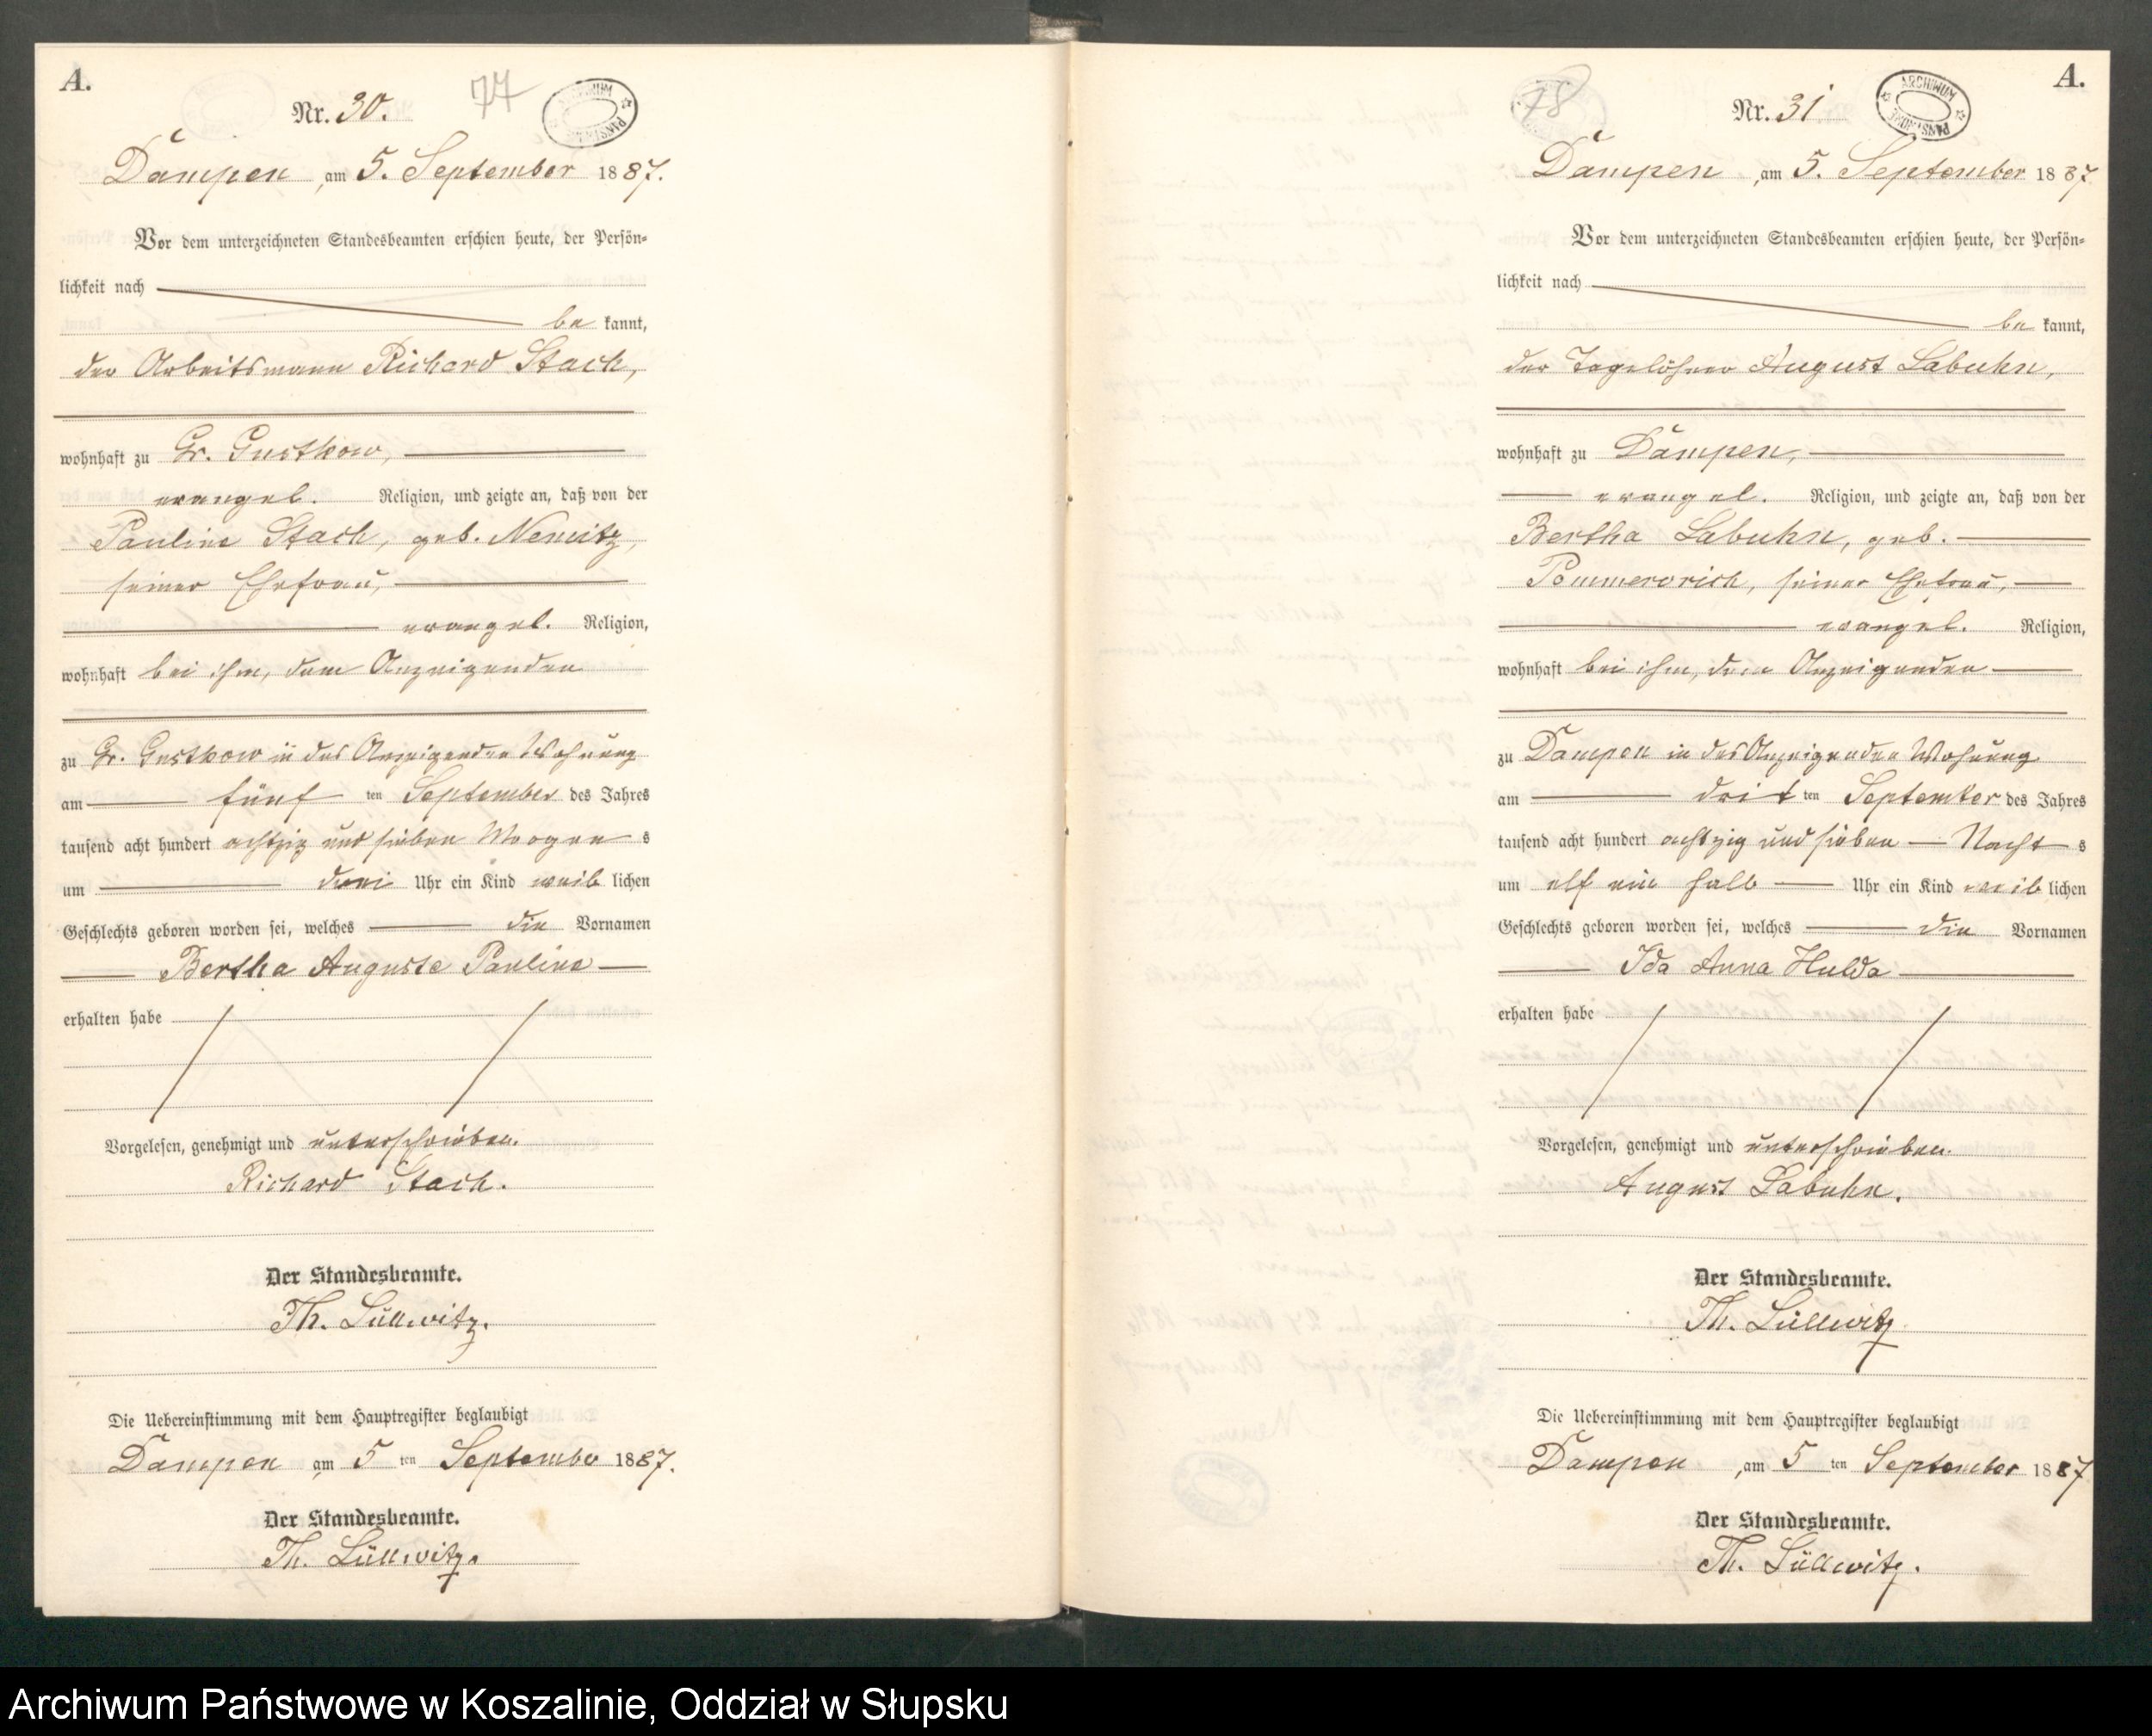 A.
Nr. 30.
77
ARCHIWUM PAŃSTWOWE
Dampen, am 5. September 1887.
Vor dem unterzeichneten Standesbeamten erschien heute, der Persön=
lichkeit nach
be kannt,
der Arbeitsmann Richard Stach,
wohnhaft zu Gr. Gustkow,
evangel. Religion, und zeigte an, daß von der
Pauline Stach, geb. Nemitz,
seiner Ehefrau,
evangel. Religion,
wohnhaft bei ihm, dem Anzeigenden
zu Gr. Gustkow in des Anzeigenden Wohnung
am fünf ten September des Jahres
tausend acht hundert achtzig und sieben Morgen s
um drei Uhr ein Kind weib lichen
Geschlechts geboren worden sei, welches die Vornamen
Bertha Auguste Pauline
erhalten habe
Vorgelesen, genehmigt und unterschrieben.
Richard Stach.
Der Standesbeamte.
Th. Lüllwitz.
Die Uebereinstimmung mit dem Hauptregister beglaubigt
Dampen am 5 ten September 1887.
Der Standesbeamte.
Th. Lüllwitz.
78
Nr. 31
ARCHIWUM PAŃSTWOWE
A.
Dampen, am 5. September 1887
Vor dem unterzeichneten Standesbeamten erschien heute, der Persön=
lichkeit nach
be kannt,
der Tagelöhner August Labuhn,
wohnhaft zu Dampen,
evangel. Religion, und zeigte an, daß von der
Bertha Labuhn, geb.
Pommerorich, seiner Ehefrau,
evangel. Religion,
wohnhaft bei ihm, dem Anzeigenden
zu Dampen in des Anzeigenden Wohnung
am drit ten September des Jahres
tausend acht hundert achtzig und sieben Nacht s
um elf ein halb Uhr ein Kind weib lichen
Geschlechts geboren worden sei, welches die Vornamen
Ida Anna Hulda
erhalten habe
Vorgelesen, genehmigt und unterschrieben.
August Labuhn.
Der Standesbeamte.
Th. Lüllwitz
Die Uebereinstimmung mit dem Hauptregister beglaubigt
Dampen, am 5 ten September 1887
Der Standesbeamte.
Th. Lüllwitz.
Archiwum Państwowe w Koszalinie, Oddział w Słupsku